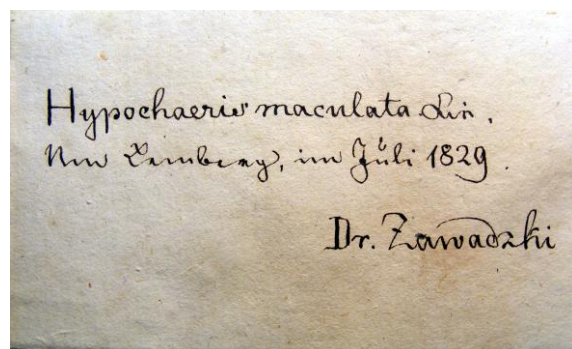 Hypochaeris maculata Lin.
Um Lemberg, im Juli 1829.
Dr. Zawadzki